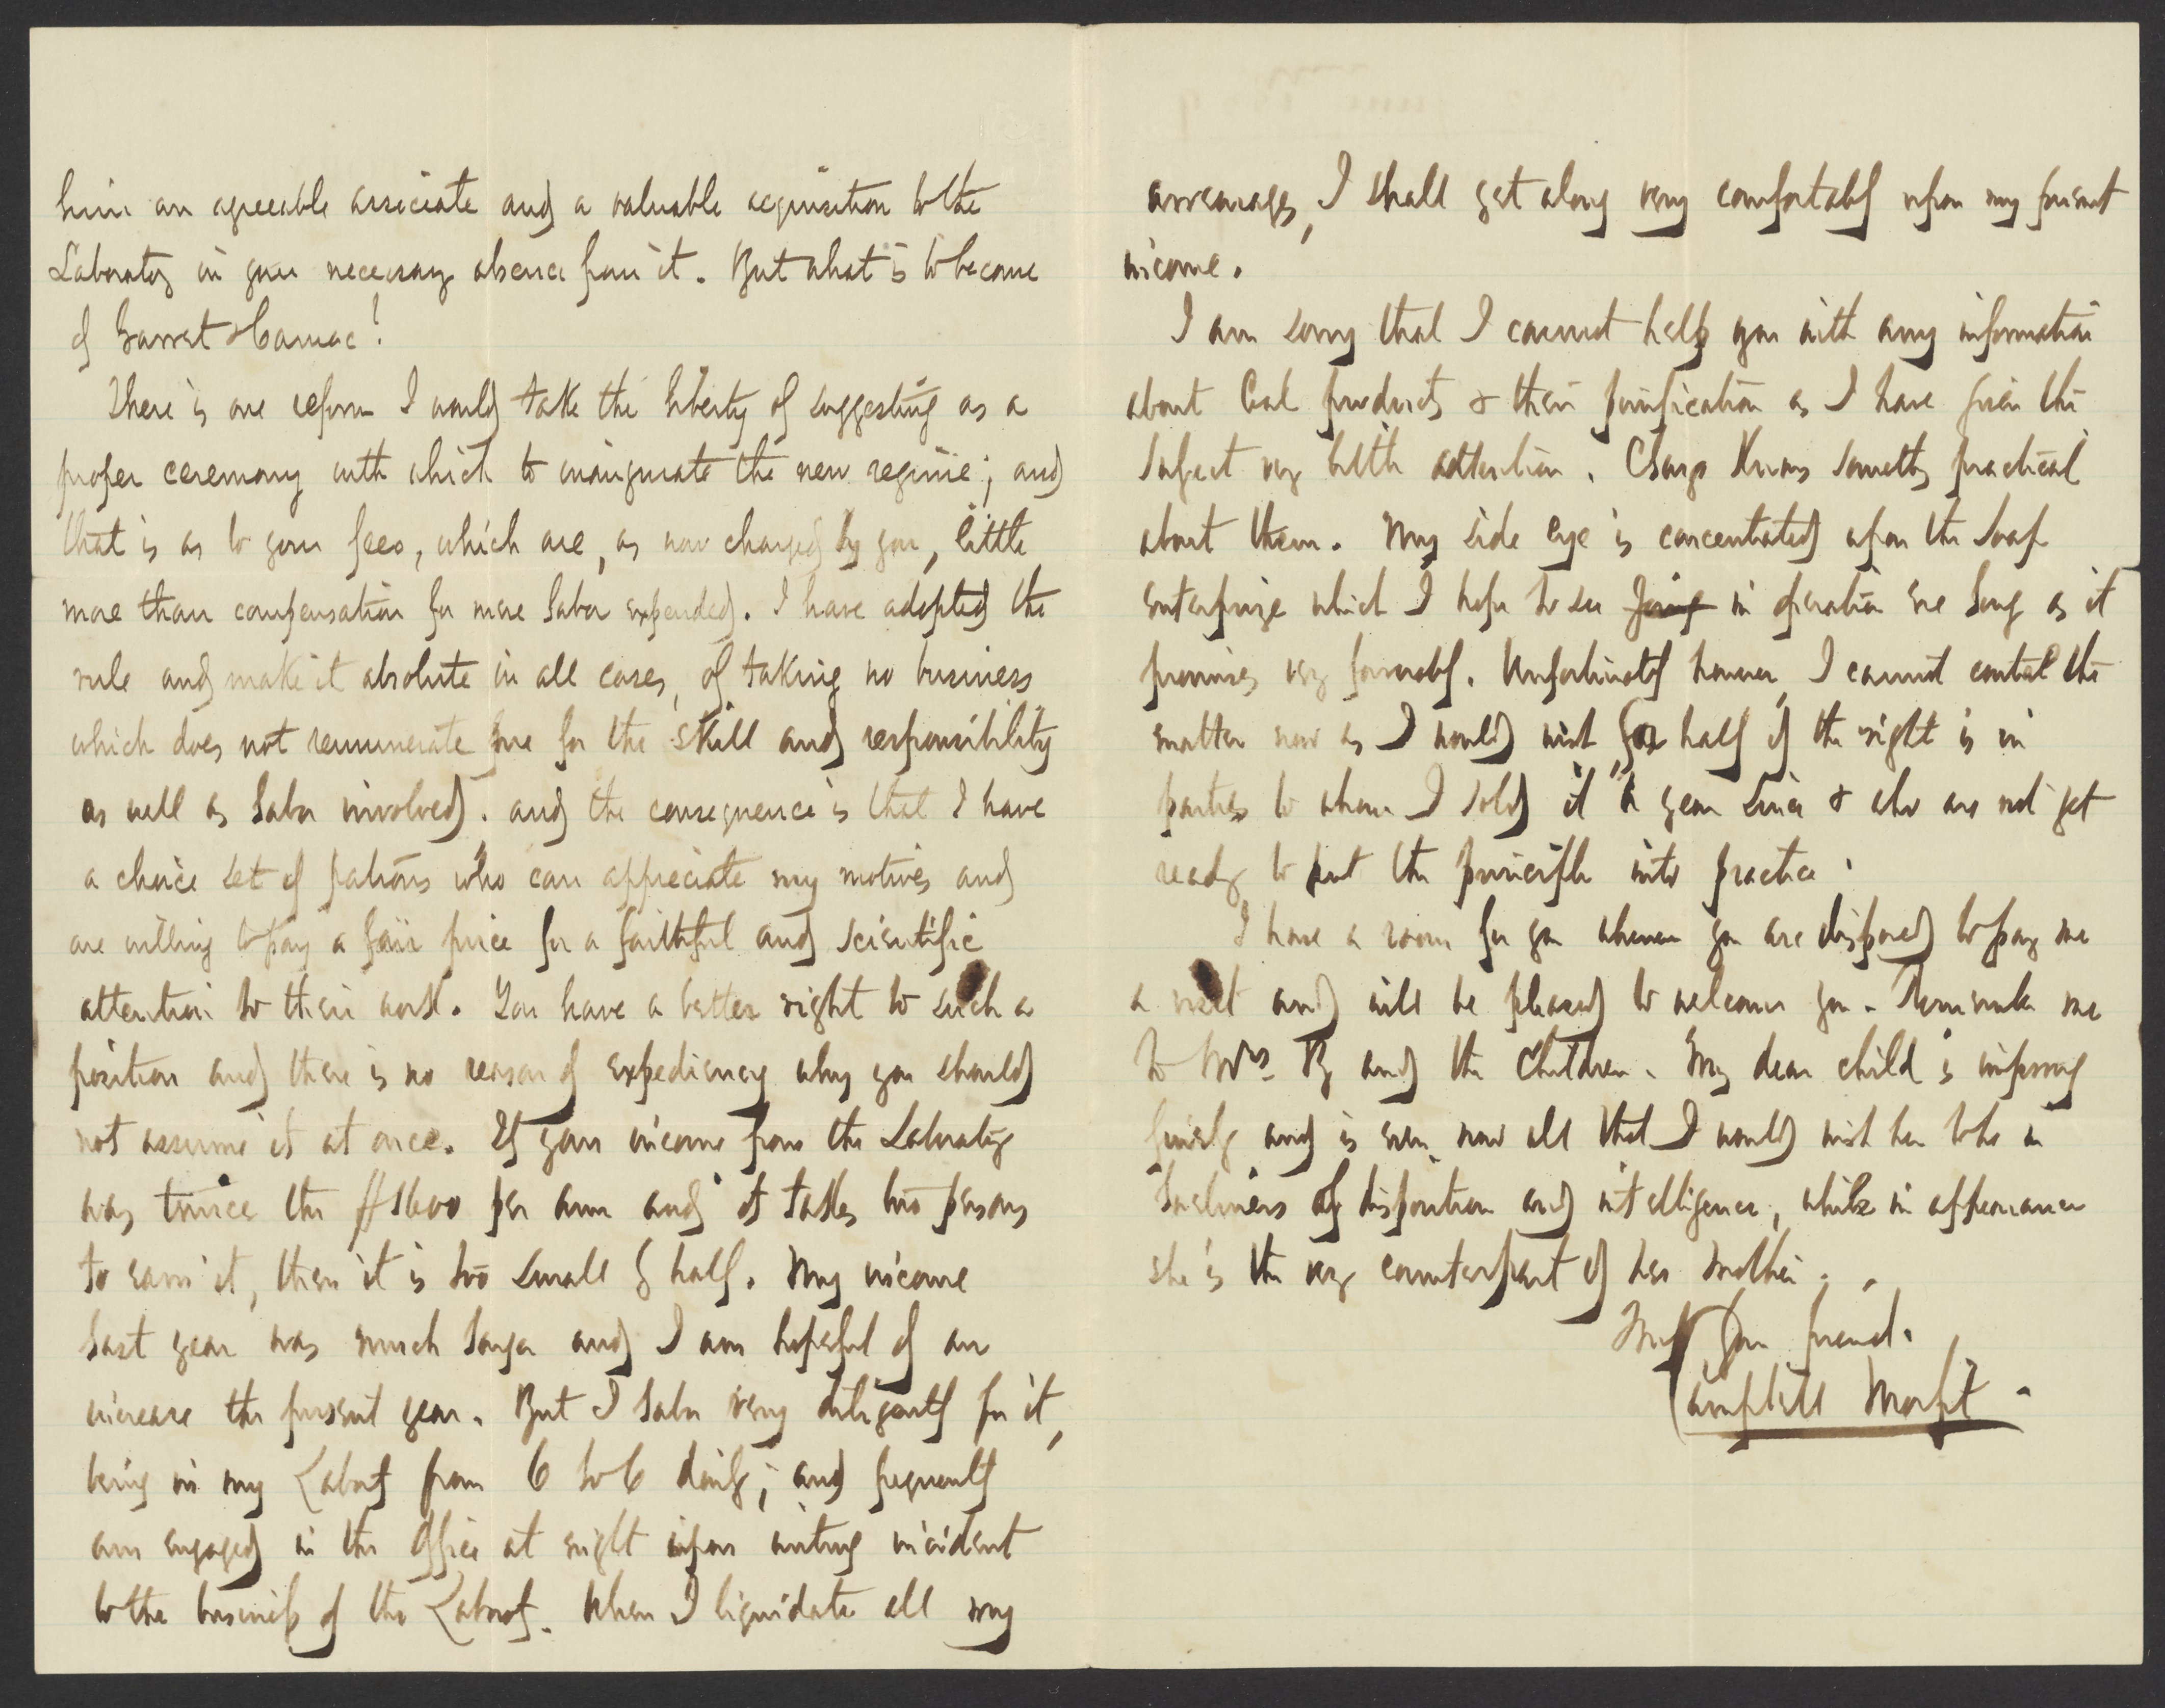 him an agreeable associate and a valuable acquisition to the
Laboratory in your necessary absence from it. But what is to become
of Garret
There is one reform I would take the liberty of suggesting as a
proper ceremony with which to inaugurate the new regime; and
that is as to your fees, which are, as now charged by you, little
more than compensation for mere labor expended. I have adopted the
rule and make it absolute in all cases, of taking no business
which does not remunerate me for the skill and responsibility
as well as labor involved. and the consequence is that I have
a choice set of patrons who can appreciate my motives and
are willing to pay a fair price for a faithful and scientific
attention to their work. You have a better right to such a
position and there is no reason of expediency why you should
not assume it at once. If your income from the Laboraty
was twice the $1600 per ann and it takes two persons
to earn it, then it is too small by half. My income
last year was much larger and I am hopeful of an
increase the present year. But I labor very diligently for it,
being in my Laboty from 6 to 6 daily; and frequently
am engaged in the Office at night upon writing incident
to the business of the Laboty. When I liquidate all my
arrearages, I shall get along very comfortably upon my present
income.
I am sorry that I cannot help you with any information
about Coal products & their purification as I have given the
subject very little attention. knows something practical
about them. My side eye is concentrated upon the soap
enterprize which I hope to see in operation ere long as it
promises very favorably. Unfortunately however, I cannot control the
matter now as I would wish for half of the right is in
parties to whom I sold it a year since & who are not yet
ready to put the principle into practice.
I have a room for you whenever you are disposed to pay me
a visit and will be pleased to welcome you. Remember me
to Mrs. B and the Children. My dear child is improving
finely and is even now all that I would wish her to be in
loveliness of disposition and intelligence, while in appearance
she is the very counterpart of her mother.
Truly Your friend.
Campbell Morfit.